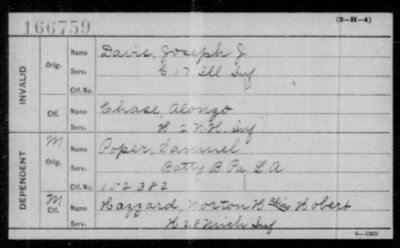 166759
(3-H-4)
INVALID
Orig.
Name Davis, Joseph J
Serv. C 17 Ill Inf
Ctf. No.
Ctf.
Name Chase, Alonzo
Serv. H 2 N.H. Inf
DEPENDENT
M
Orig.
Name Poper, Samuel
Serv. Batty B Pa L A
Ctf. No. 152382
M
Ctf.
Name Hazzard, Norton H alias Hobert
Serv. H 28 Mich Inf